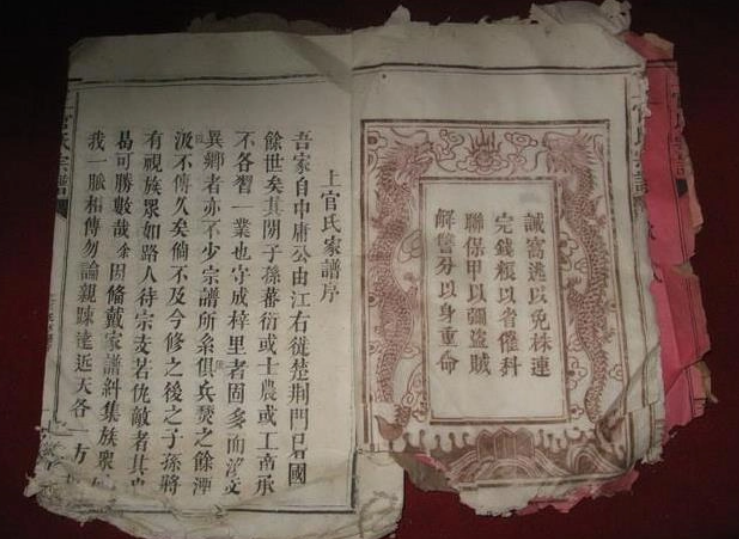 誠窩逃以免株連
完錢糧以省催科
聯保甲以疆盜賊
解讐分以身重命
上官氏家譜序
吾家自中庸公由江右徙楚荊門已國
餘世矣其閒子孫蕃衍或士農或工商承
不各習一業也守成梓里者固多而
異鄉者亦不少宗譜所系俱兵焚之餘湮
汲不傳久矣倘不及今修之後之子孫將
有視族眾如路人待宗支若仇敵者其
曷可勝數哉余因脩戴家譜糾集族眾
我一脈相傳勿論親踈遠近天各一方
官氏宗譜
官氏宗譜